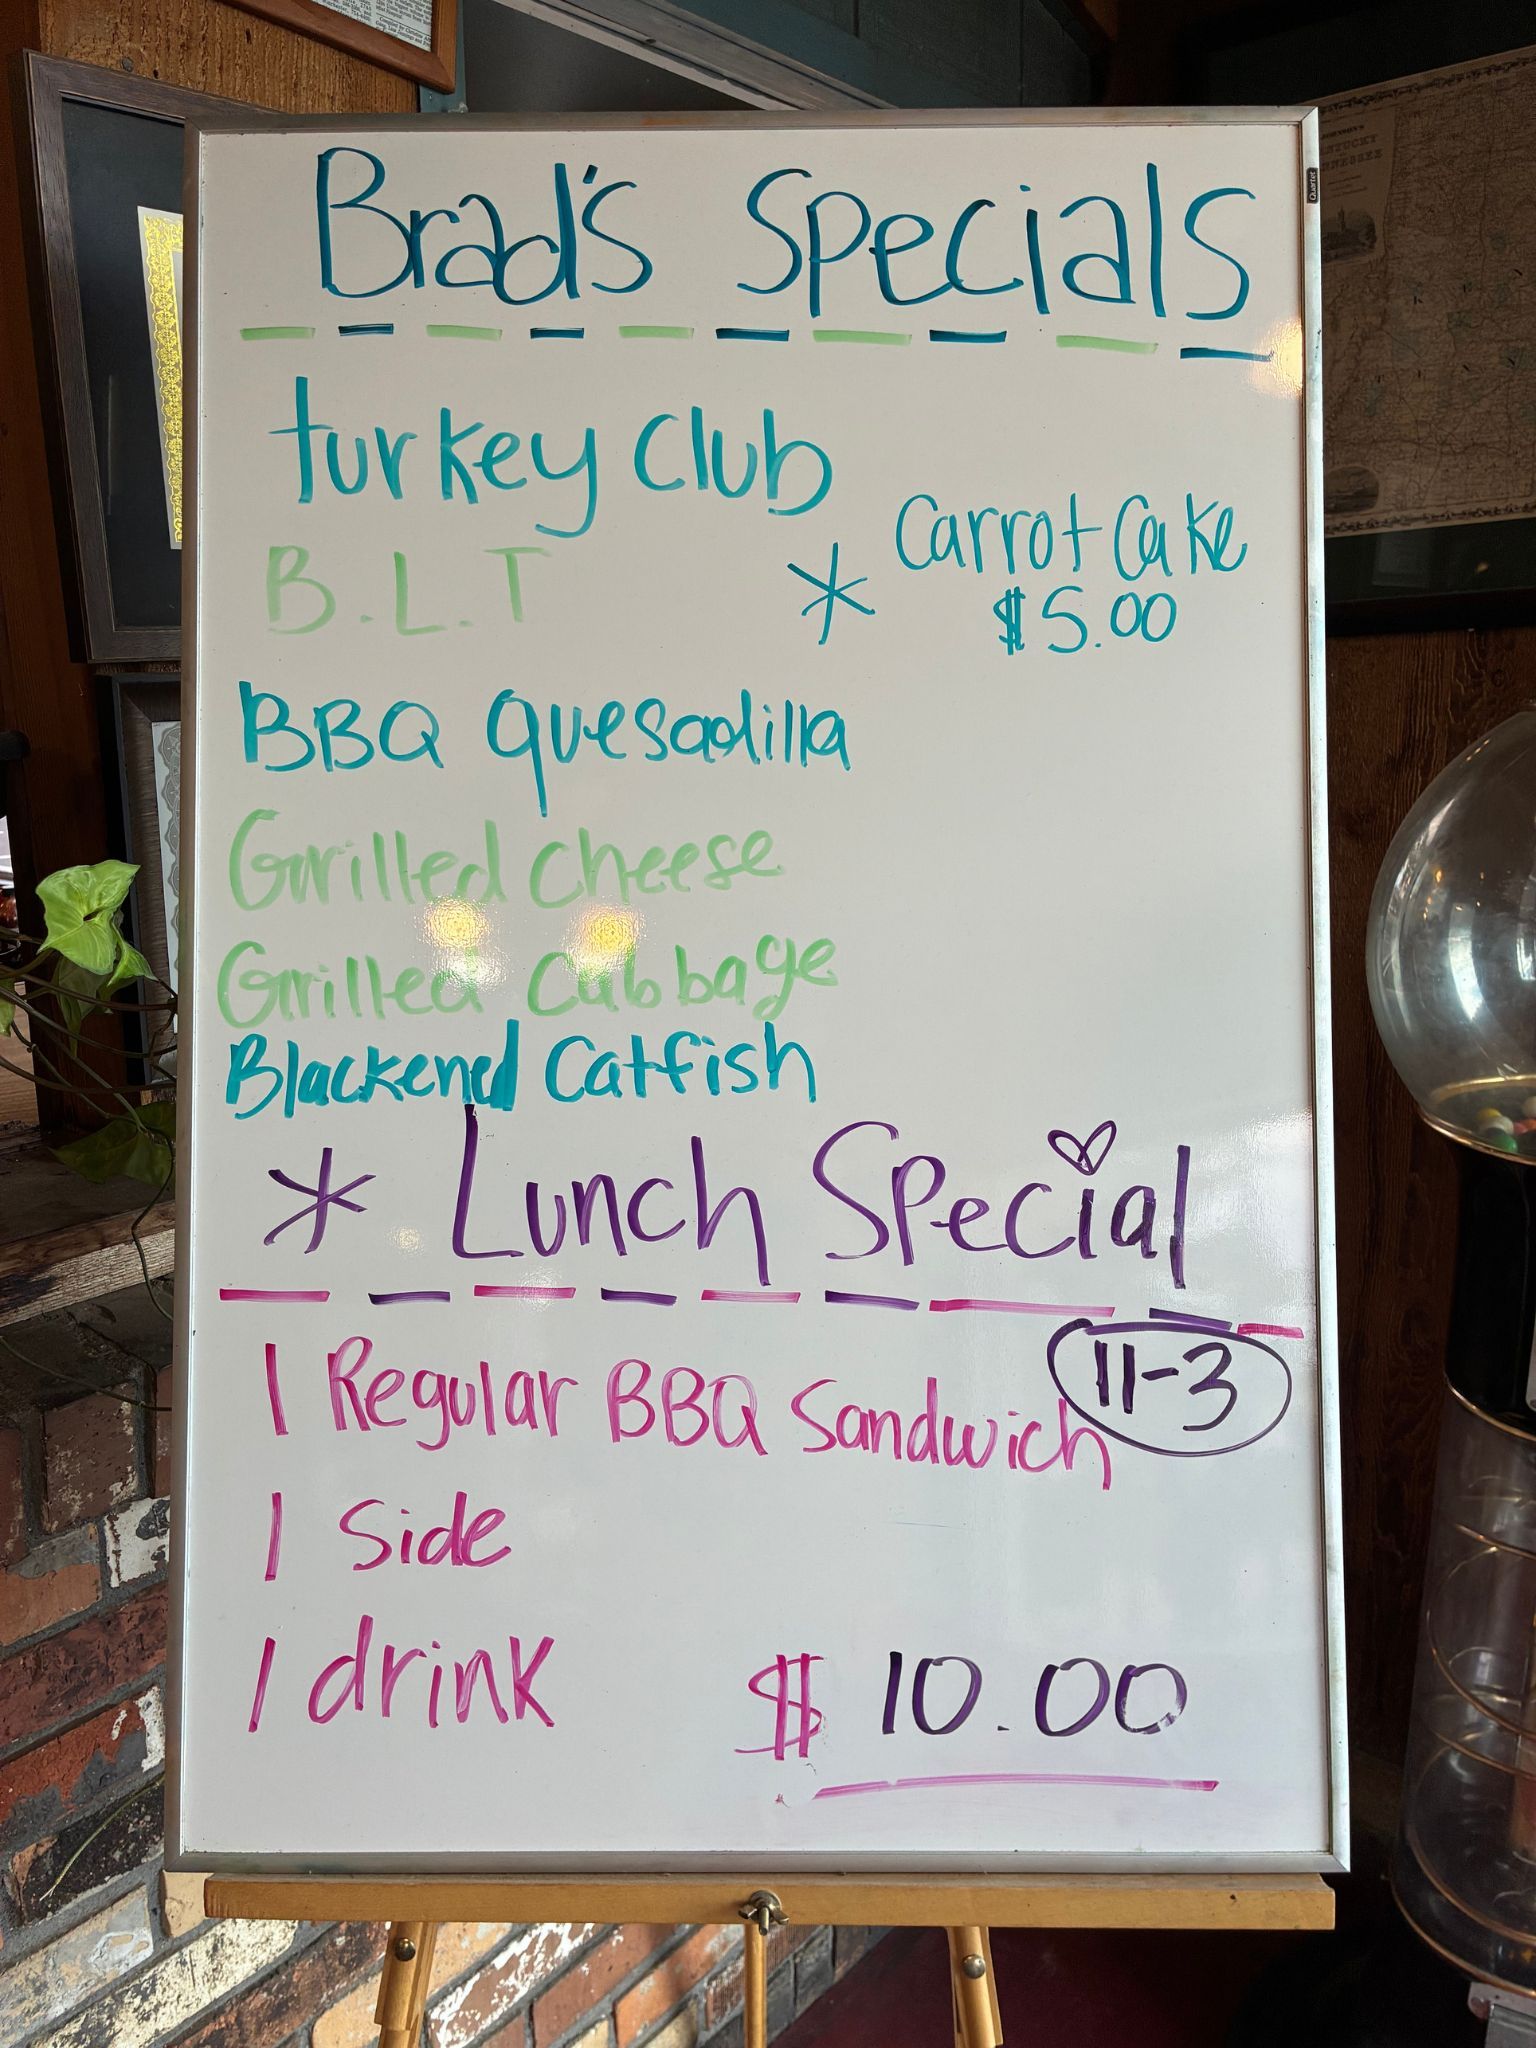 Brad's Specials
turkey club
B.L.T
* Carrot Cake
$5.00
BBQ Quesadilla
Grilled cheese
Grilled Cabbage
Blackened Catfish
* Lunch Special
11-3
1 Regular BBQ Sandwich
1 Side
1 drink $10.00
Quartet